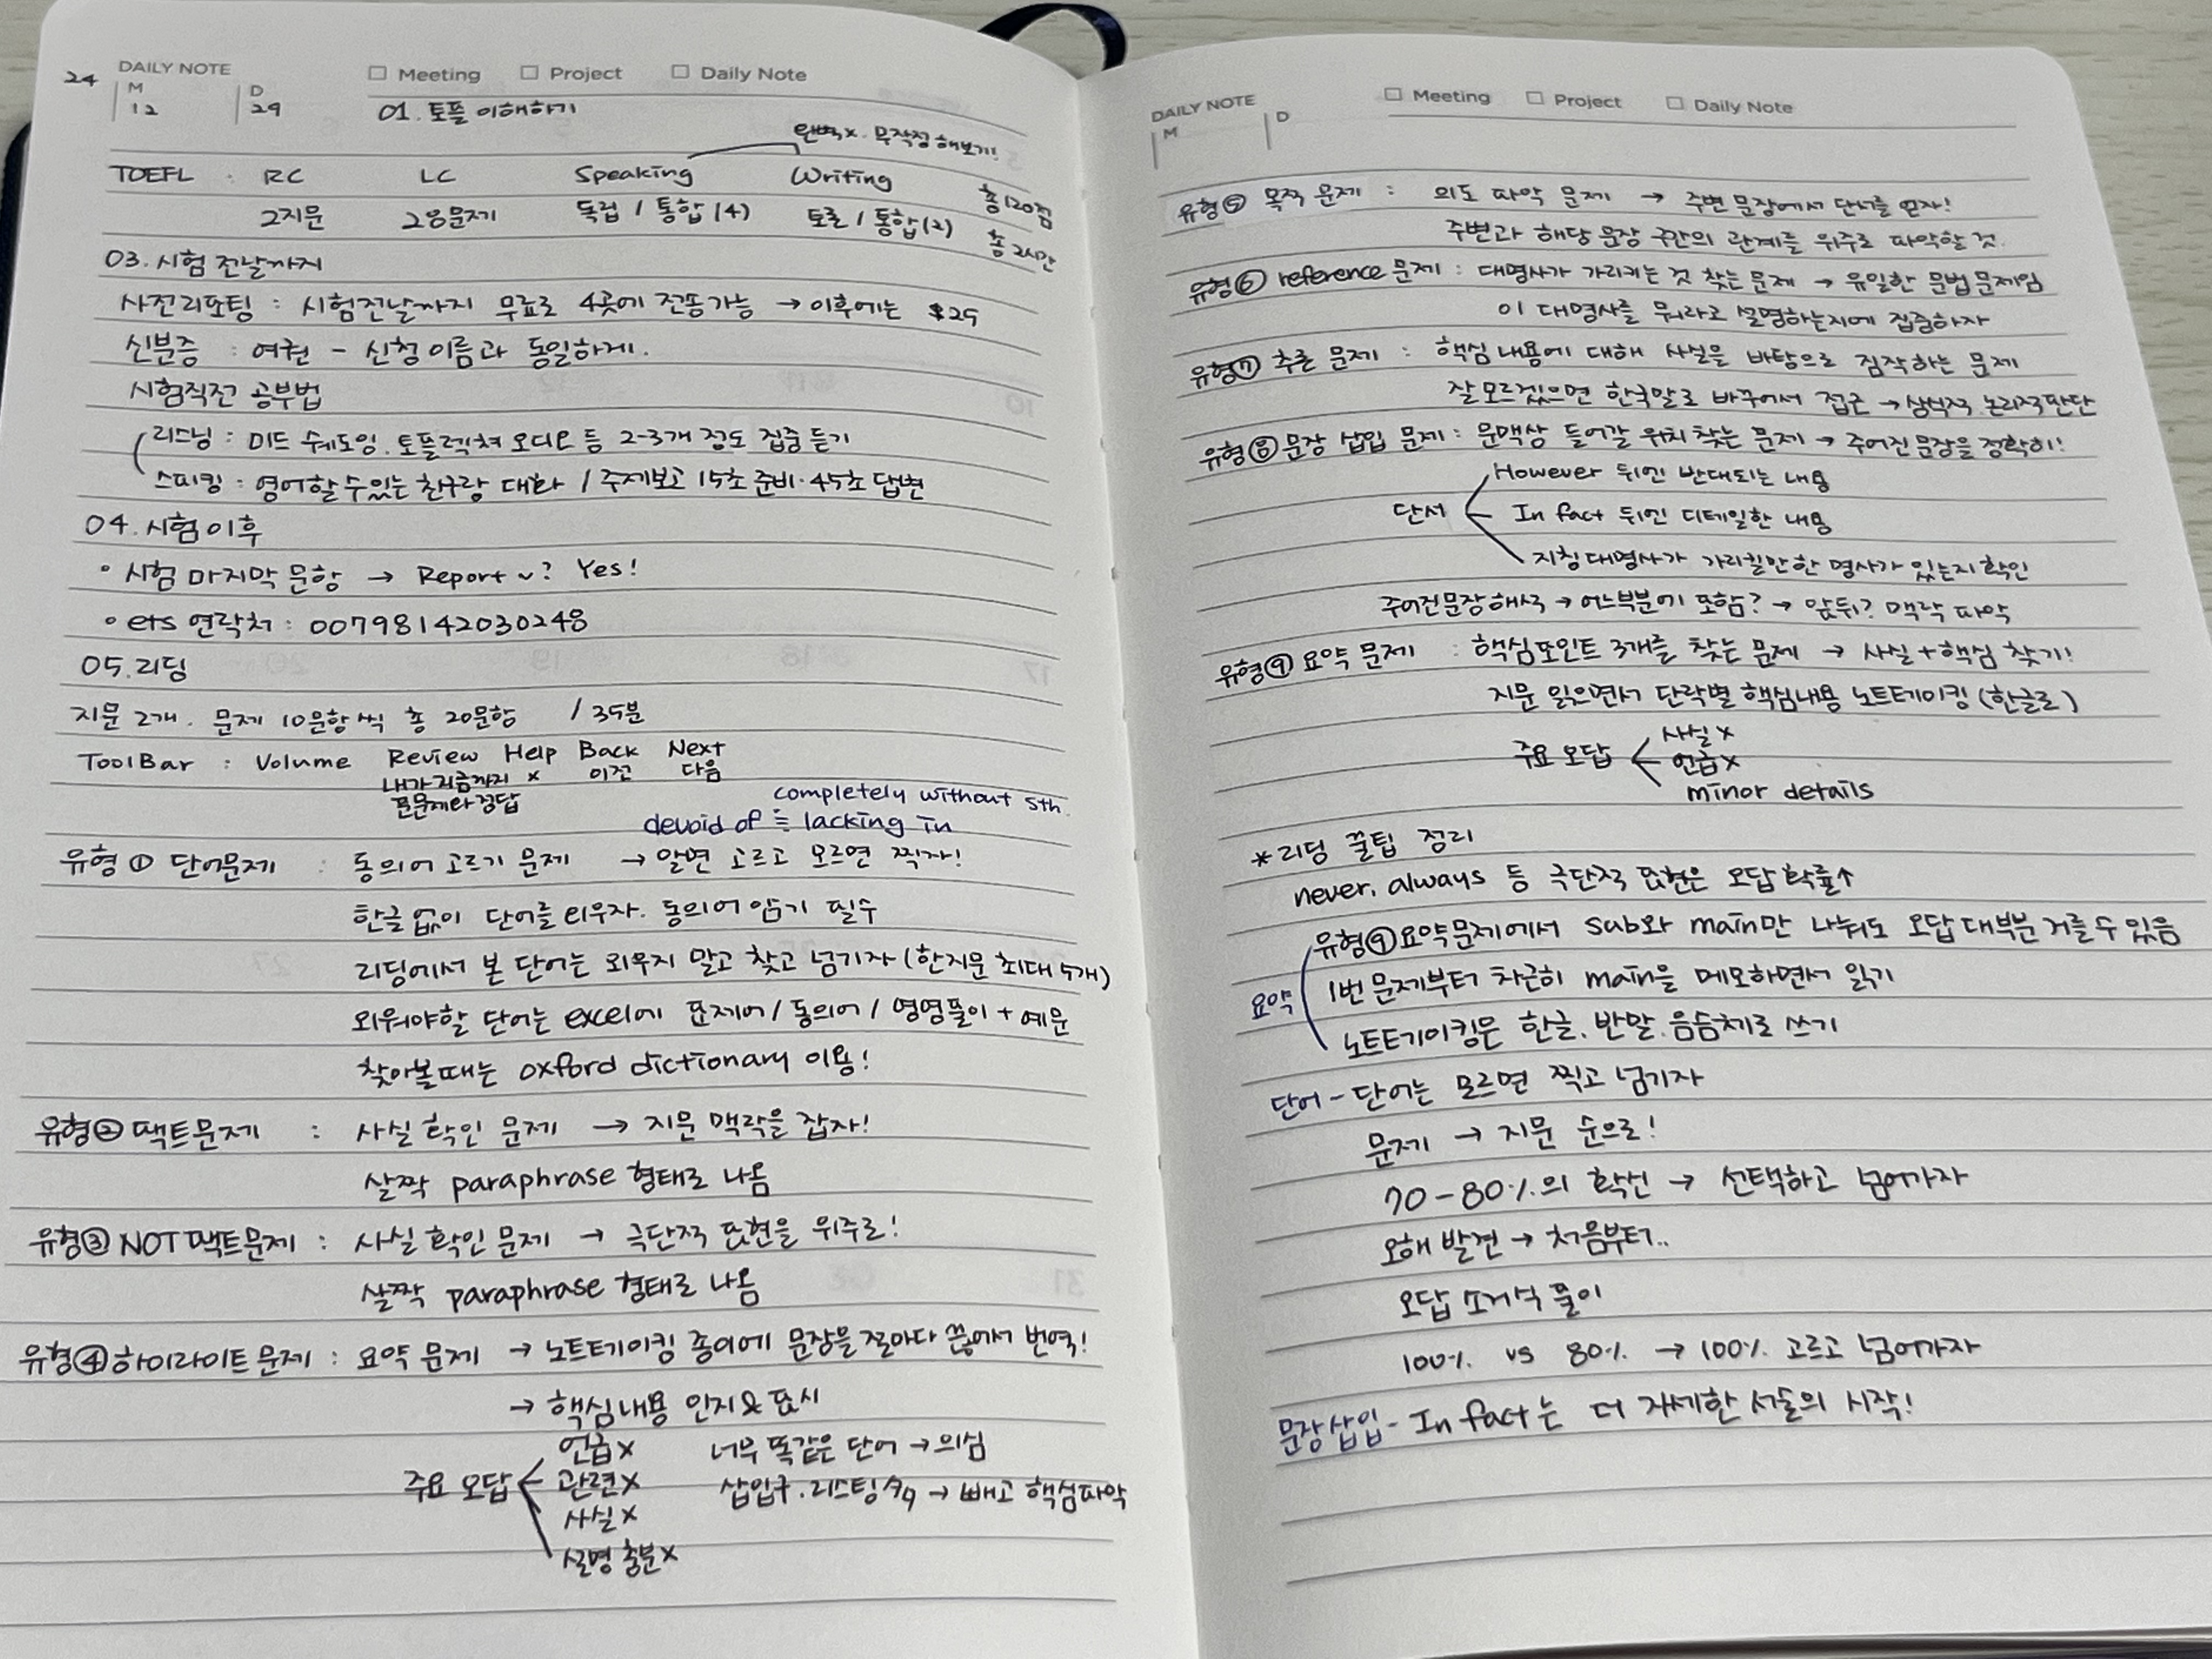 24 DAILY NOTE □ Meeting □ Project □ Daily Note
M 12 D 29 01. 토플 이해하기
완벽x. 무작정 해보기!
TOEFL : RC LC Speaking Writing 총 120점
2지문 28문제 독립 / 통합 (4) 토론 / 통합 (2) 총 2시간
03. 시험 전날까지
사전리포팅 : 시험전날까지 무료로 4곳에 전송가능 → 이후에는 $25
신분증 : 여권 - 신청 이름과 동일하게.
시험직전 공부법
리스닝 : 미드 쉐도잉. 토플렉쳐 오디오 등 2-3개 정도 집중 듣기
스피킹 : 영어할 수 있는 친구랑 대화 / 주제보고 15초 준비·45초 답변
04. 시험 이후
• 시험 마지막 문항 → Report ~? Yes!
• ets 연락처 : 00798142030248
05. 리딩
지문 2개. 문제 10문항씩 총 20문항 / 35분
ToolBar : Volume Review Help Back Next
내가 지금까지 x 이전 다음
푼문제와 정답
completely without sth.
devoid of ≒ lacking in
유형① 단어문제 : 동의어 고르기 문제 → 알면 고르고 모르면 찍자!
한글 없이 단어를 외우자. 동의어 암기 필수
리딩에서 본 단어는 외우지 말고 찾고 넘기자 (한지문 최대 5개)
외워야할 단어는 excel에 표제어 / 동의어 / 영영풀이 + 예문
찾아볼때는 oxford dictionary 이용!
유형② 팩트문제 : 사실 확인 문제 → 지문 맥락을 잡자!
살짝 paraphrase 형태로 나옴
유형③ NOT 팩트문제 : 사실 확인 문제 → 극단적 표현을 위주로!
살짝 paraphrase 형태로 나옴
유형④ 하이라이트 문제 : 요약 문제 → 노트테이킹 종이에 문장을 절마다 끊어서 번역!
→ 핵심내용 인지 & 표시
언급x 너무 똑같은 단어 → 의심
주요 오답 관련x 삽입구. 리스팅 → 빼고 핵심파악
사실x
설명 충분x
DAILY NOTE □ Meeting □ Project □ Daily Note
M D
유형⑤ 목적 문제 : 의도 파악 문제 → 주변 문장에서 단서를 얻자!
주변과 해당 문장 구간의 관계를 위주로 파악할 것.
유형⑥ reference 문제 : 대명사가 가리키는 것 찾는 문제 → 유일한 문법 문제임
이 대명사를 뭐라고 설명하는지에 집중하자
유형⑦ 추론 문제 : 핵심 내용에 대해 사실을 바탕으로 짐작하는 문제
잘 모르겠으면 한국말로 바꾸어서 접근 → 상식적. 논리적 판단
유형⑧ 문장 삽입 문제 : 문맥상 들어갈 위치 찾는 문제 → 주어진 문장을 정확히!
However 뒤엔 반대되는 내용
단서 In fact 뒤엔 디테일한 내용
지칭 대명사가 가리킬만한 명사가 있는지 확인
주어진 문장 해석 → 어느부분에 포함? → 앞뒤? 맥락 파악
유형⑨ 요약 문제 : 핵심포인트 3개를 찾는 문제 → 사실 + 핵심 찾기!
지문 읽으면서 단락별 핵심내용 노트테이킹 (한글로)
사실x
주요 오답 언급x
minor details
*리딩 꿀팁 정리
never, always 등 극단적 표현은 오답 확률↑
유형⑨ 요약문제에서 sub와 main만 나눠도 오답 대부분 거를 수 있음
요약 1번 문제부터 차근히 main을 메모하면서 읽기
노트테이킹은 한글. 반말. 음슴체로 쓰기
단어 - 단어는 모르면 찍고 넘기자
문제 → 지문 순으로!
70-80%의 확신 → 선택하고 넘어가자
오해 발견 → 처음부터..
오답 소거식 풀이
100% vs 80% → 100% 고르고 넘어가자
문장삽입 - In fact는 더 자세한 서술의 시작!